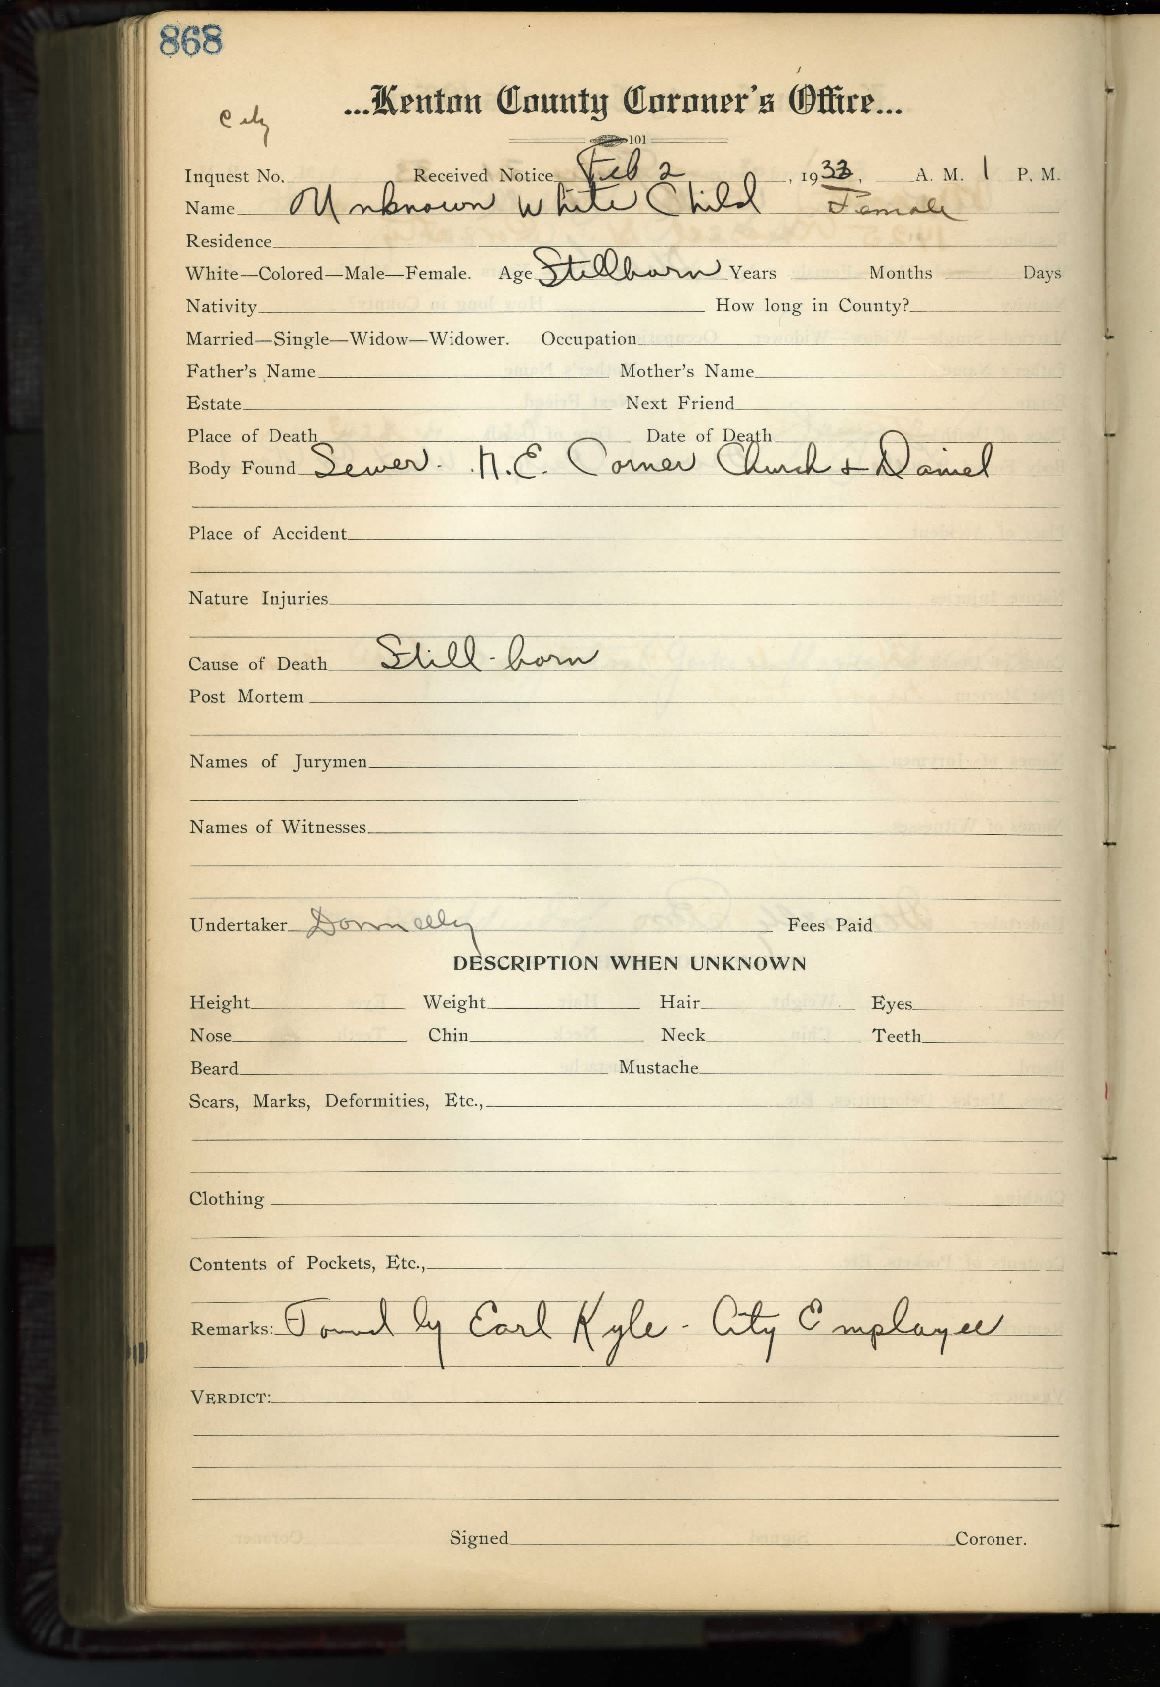 868
...Kenton County Coroner's Office...
City
101
Inquest No. Received Notice Feb 2, 1933, A. M. 1 P. M.
Name Unknown White Child Female
Residence
White—Colored—Male—Female. Age Stillborn Years Months Days
Nativity How long in County?
Married—Single—Widow—Widower. Occupation
Father's Name Mother's Name
Estate Next Friend
Place of Death Date of Death
Body Found Sewer - N.E. Corner Church & Daniel
Place of Accident
Nature Injuries
Cause of Death Still-born
Post Mortem
Names of Jurymen
Names of Witnesses
Undertaker Donnelly Fees Paid
DESCRIPTION WHEN UNKNOWN
Height Weight Hair Eyes
Nose Chin Neck Teeth
Beard Mustache
Scars, Marks, Deformities, Etc.,
Clothing
Contents of Pockets, Etc.,
Remarks: Found by Earl Kyle - City Employee
VERDICT:
Signed Coroner.